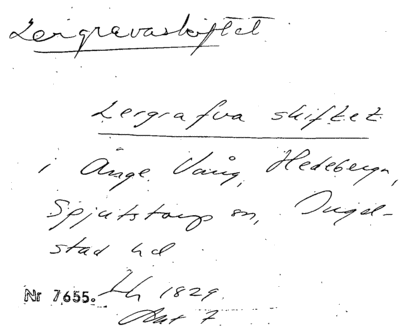 Lergravaskiftet
Lergrafva skiftet
i Änge Vång, Hedeberga,
Spjutstorp sn, Ingel-
stad hd
Nr 7655. Lh 1829
Akt 7